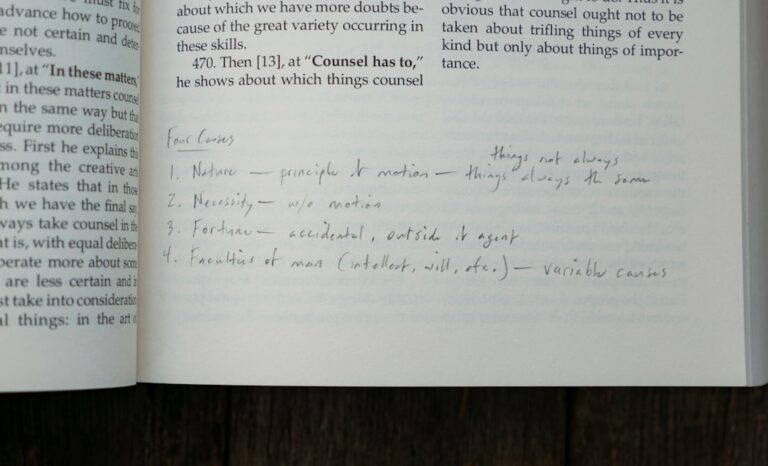 must fix in
advance how to proceed
e not certain and dete
mselves.
11], at “In these matters,”
in these matters counse
n the same way but tha
equire more deliberation
ss. First he explains tha
mong the creative arts
He states that in those
h we have the final say
ways take counsel in the
at is, with equal delibera
perate more about some
are less certain and in
st take into consideration
al things: in the art o
about which we have more doubts be-
cause of the great variety occurring in
these skills.
470. Then [13], at “Counsel has to,”
he shows about which things counsel
Thus it is
obvious that counsel ought not to be
taken about trifling things of every
kind but only about things of impor-
tance.
Four Causes
things not always
1. Nature — principle of motion — things always the same
2. Necessity — w/o motion
3. Fortune — accidental, outside it agent
4. Faculties of man (intellect, will, etc.) — variable causes